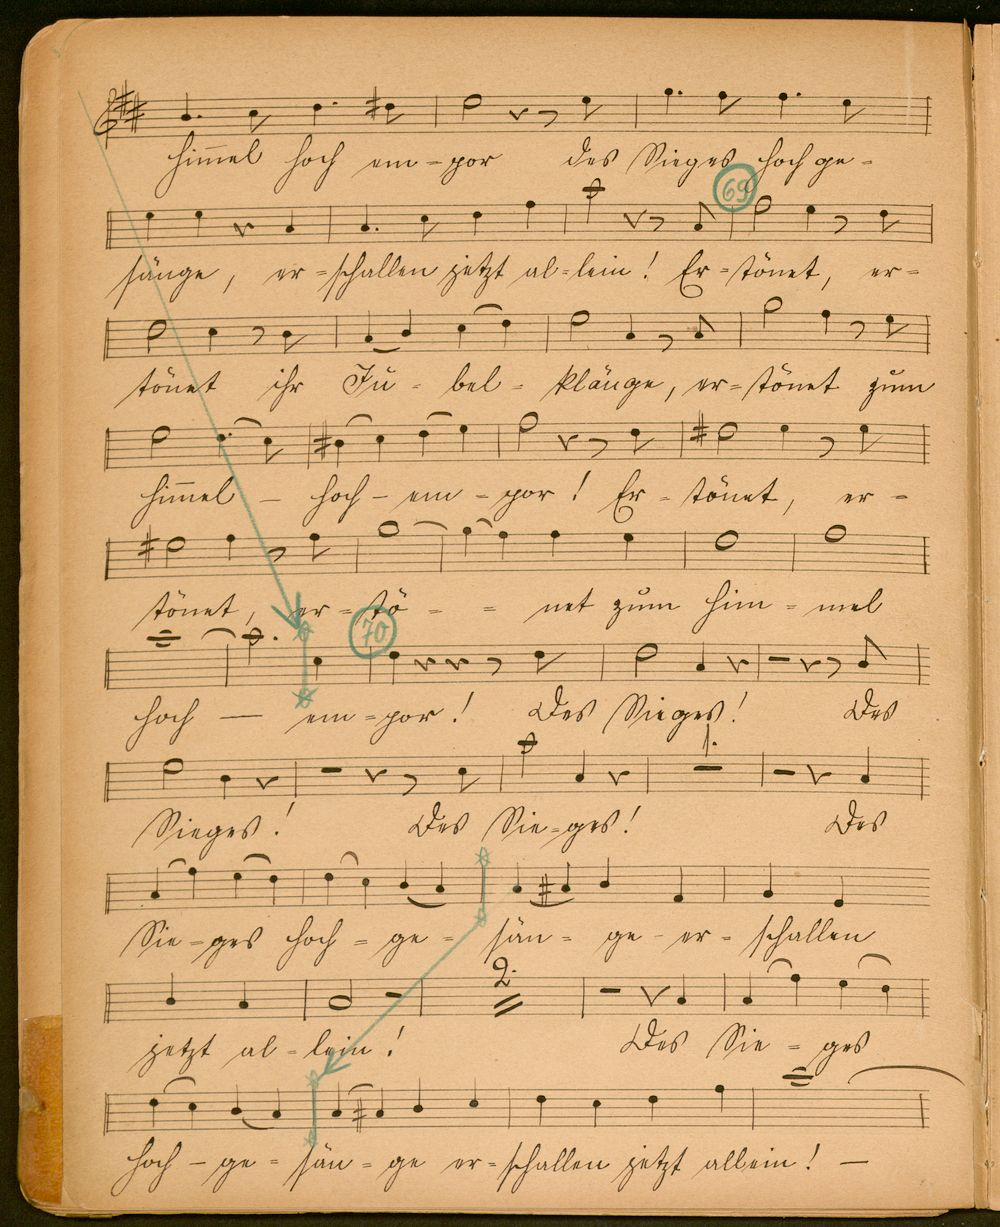 him̅el hoch em-por des Sieges hoch ge-
69
sänge, er-schallen jetzt al-lein! Er-tönet, er-
tönet ihr Ju-bel-klänge, er-tönet zum
him̅el - hoch-em-por! Er-tönet, er-
tönet, er-tö - - net zum him-mel
70
hoch — em-por! Des Sieges! Des
1.
Sieges! Des Sie-ges! Des
Sie-ges hoch-ge-sän-ge-er-schallen
2.
jetzt al-lein! Des Sie-ges
hoch-ge-sän-ge er-schallen jetzt allein! —